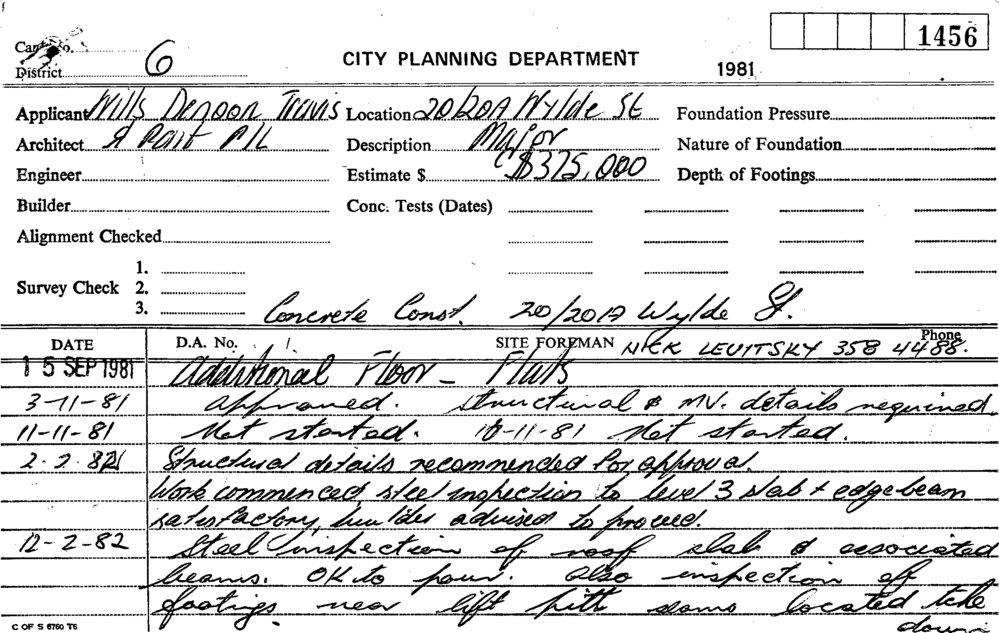 1456
Card No.
CITY PLANNING DEPARTMENT
1981
District 6
Applicant Wills Denoon Travis Location 20/20A Wylde St Foundation Pressure
Architect A P/L Description Major Nature of Foundation
Engineer Estimate $ $375,000 Depth of Footings
Builder Conc. Tests (Dates)
Alignment Checked
1.
Survey Check 2.
3.
Concrete Const. 20/20A Wylde St.
DATE D.A. No. SITE FOREMAN NICK LEVITSKY Phone 358 4488.
15 SEP 1981 Additional Floor - Flats
3-11-81 approved. structural & MV. details required.
11-11-81 Not started. -11-81 Not started.
2.2.82 Structural details recommended for approval.
Work commenced steel inspection to level 3 slab + edge beam
satisfactory, builder advised to proceed.
12-2-82 Steel inspection of roof slab & associated
beams. OK to pour. Also inspection of
footings near lift pitt same located
down
C OF S 6760 T6